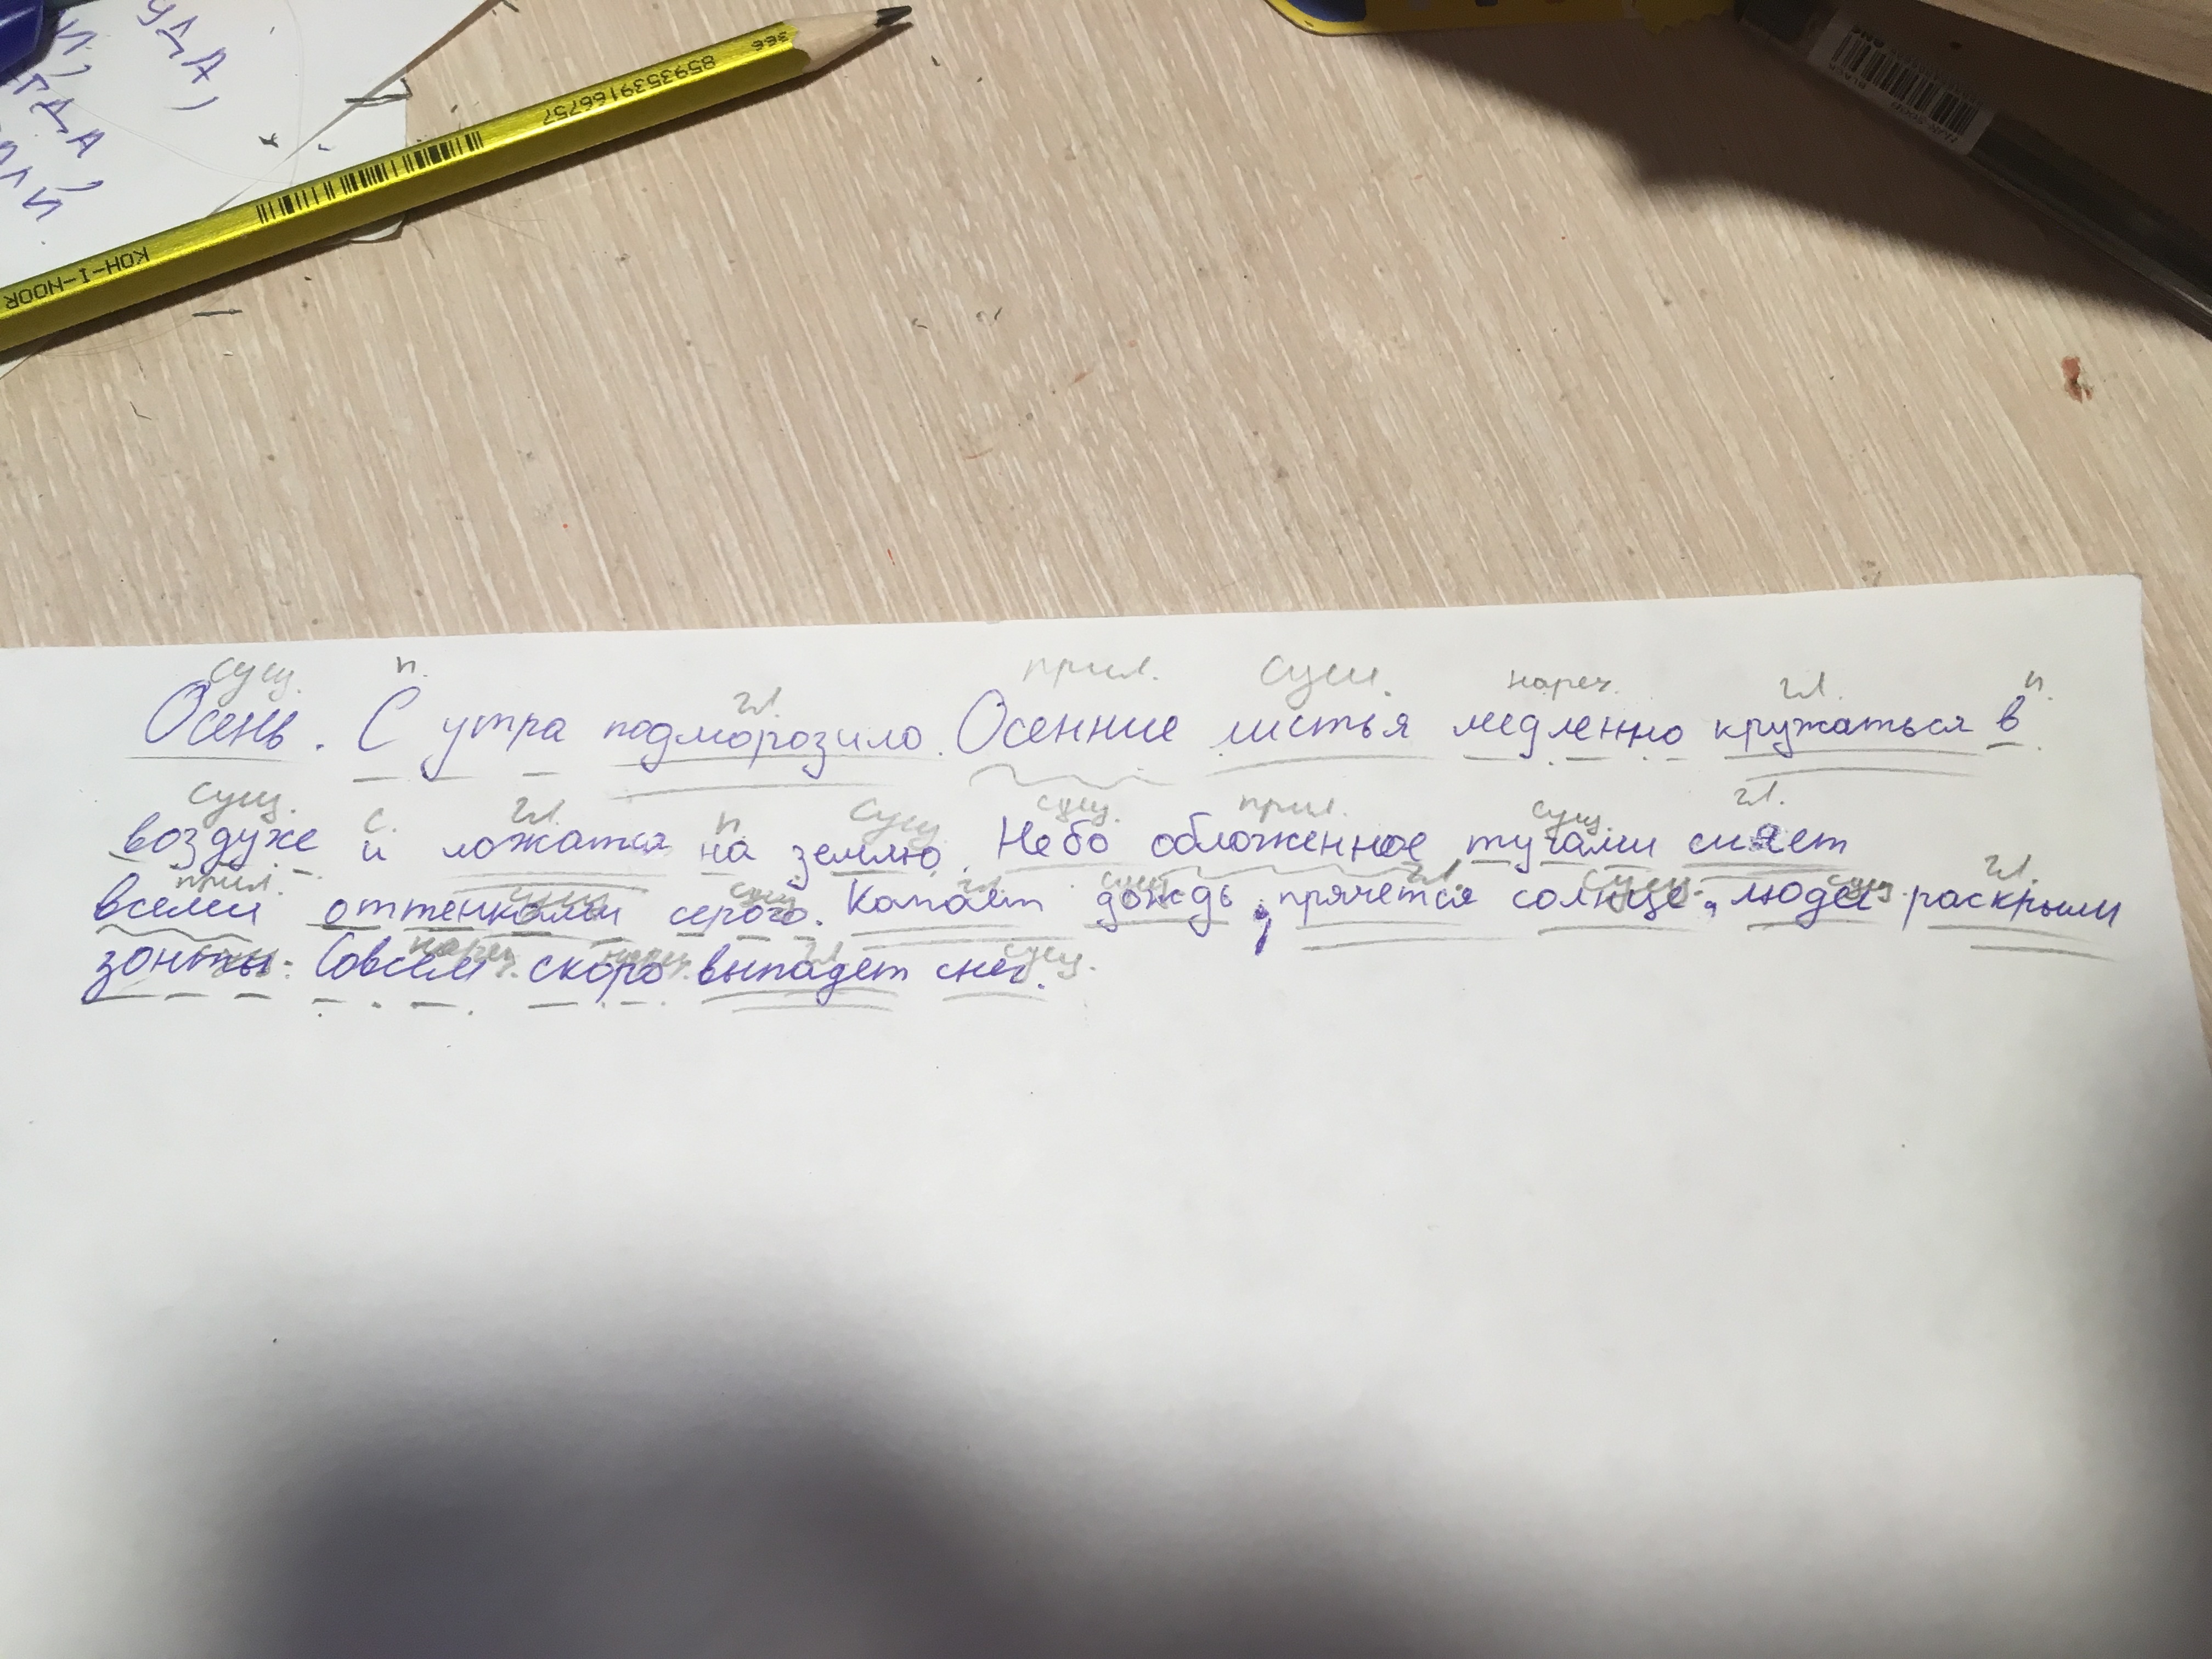 УДА,
И,
ГДА,
ЛИ
366
8593539166757
KOH-I-NOOR
сущ. п. гл. прил. сущ. нареч. гл. п.
Осень. С утра подморозило. Осенние листья медленно кружаться в
сущ. с. гл. п. сущ. сущ. прил. сущ. гл.
воздухе и ложатся на землю. Небо обложенное тучами сияет
прил. сущ. гл. сущ. гл. сущ. сущ. гл.
всеми оттенками серого. Капает дождь, прячется солнце, люди раскрыли
нареч. нареч. гл. сущ.
зонты. Совсем скоро выпадет снег.